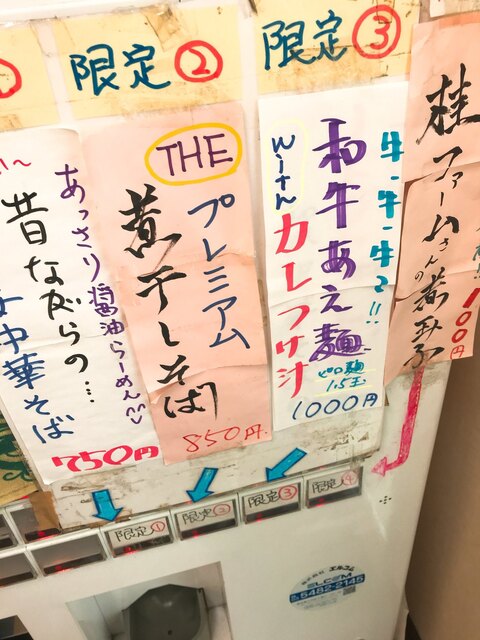 ①
限定②
限定③
あっさり醤油らーめん
昔ながらの…
中華そば
750円
THE
プレミアム
煮干しそば
850円
牛・牛・牛る!!
和牛あえ麺
with
カレつけ汁
1000円
1.5玉
桂ファームさんの煮玉子
100円
限定①
限定②
限定③
限定④
株式会社 エルコム
ELCOM
5482-2145